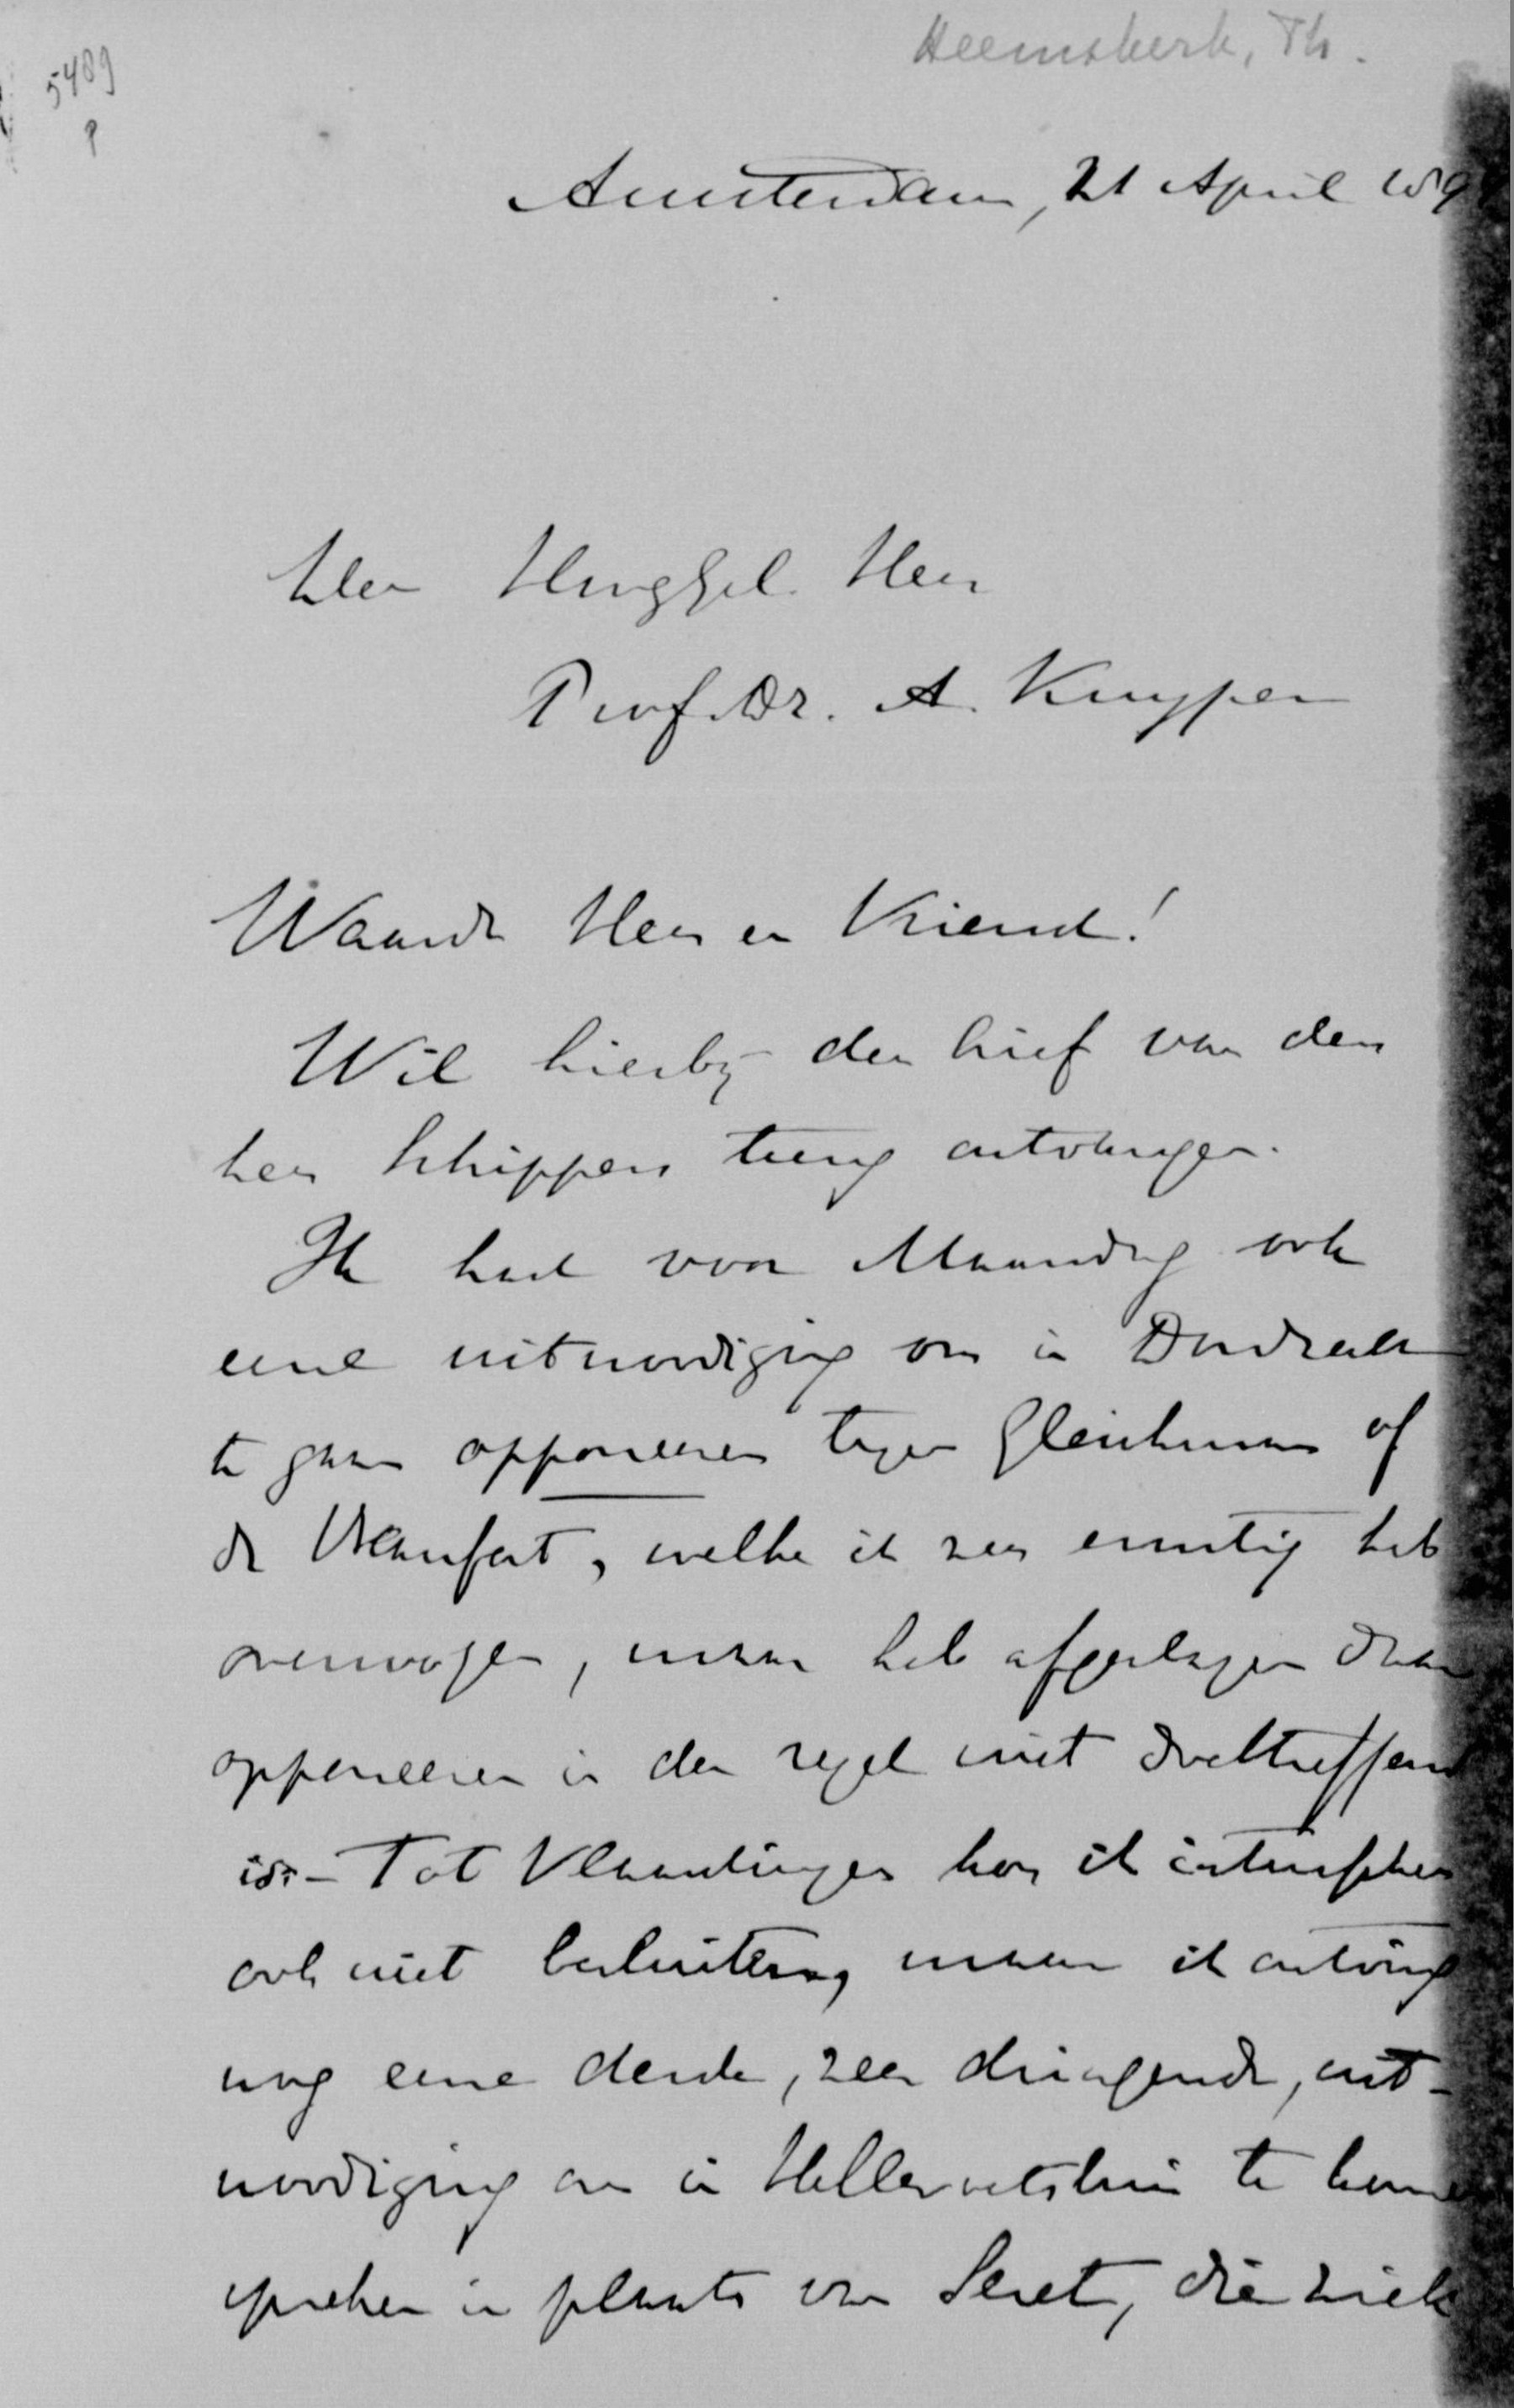 Heemskerk, Th.
5489
Amsterdam, 21 April 189
Den HoogGel. Heer
Prof. Dr. A. Kuyper
Waarde Heer en Vriend!
Wil hierby den brief van den
heer Schippers terug ontvangen.
Ik had voor Maandag ook
eene uitnoodiging om in Dordrecht
te gaan opponeeren tegen Gleichman of
de Beaufort, welke ik zeer ernstig heb
overwogen, maar heb afgeslagen daar
opponeeren in den regel niet doeltreffend
is. - Tot Vlaardingen kon ik intusschen
ook niet besluiten, maar ik ontving
nog eene derde, zeer dringende, uit-
noodiging om in Hellevoetsluis te komen
spreken in plaats van Seret, die ziek